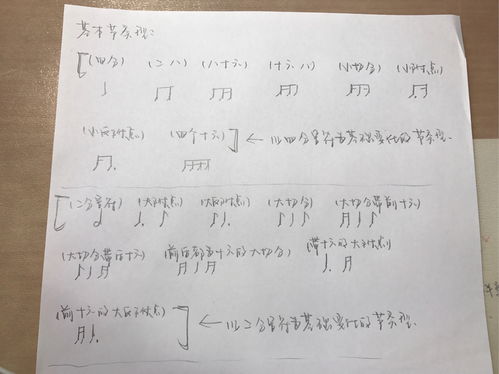 基本节奏型：
(四分) (二八) (八十六) (十六八) (小切分) (小附点)
(小反附点) (四个十六) ← 以四分音符为基础变化的节奏型.
(二分音符) (大附点) (大反附点) (大切分) (大切分带前十六)
(大切分带后十六) (前后都带十六的大切分) (带十六的大附点)
(前十六的大反附点) ← 以二分音符为基础变化的节奏型.